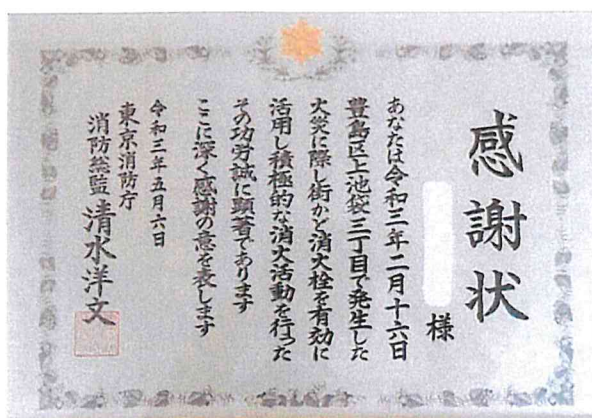 感謝状
様
あなたは令和三年二月十六日
豊島区上池袋三丁目で発生した
火災に際し街かど消火栓を有効に
活用し積極的な消火活動を行った
その功労誠に顕著であります
ここに深く感謝の意を表します
令和三年五月六日
東京消防庁
消防総監 清水洋文